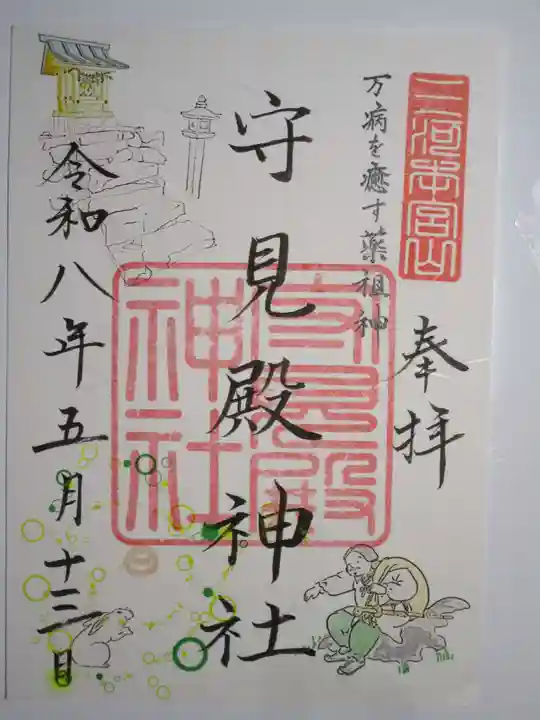 三河本宮山
奉拝
万病を癒す薬祖神
守見殿神社
守見殿神社
令和八年五月十三日